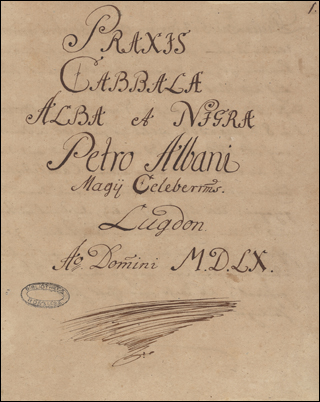 1.
PRAXIS
CABBALA
ALBA et NIGRA
Petro Albani
Magÿ Celeberrms.
Lugdon.
Ao Domini M.D.LX.
BIBLIOTHECA